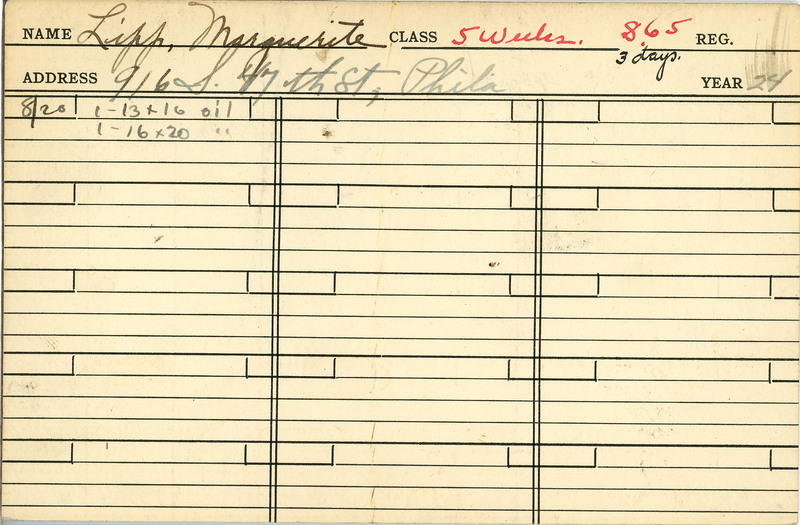 NAME Lipp, Marguerite CLASS 5 Weeks. 865 REG.
3 days.
ADDRESS 916 S. 47th St, Phila YEAR 24
8/20 1-13x16 oil
1-16x20 "